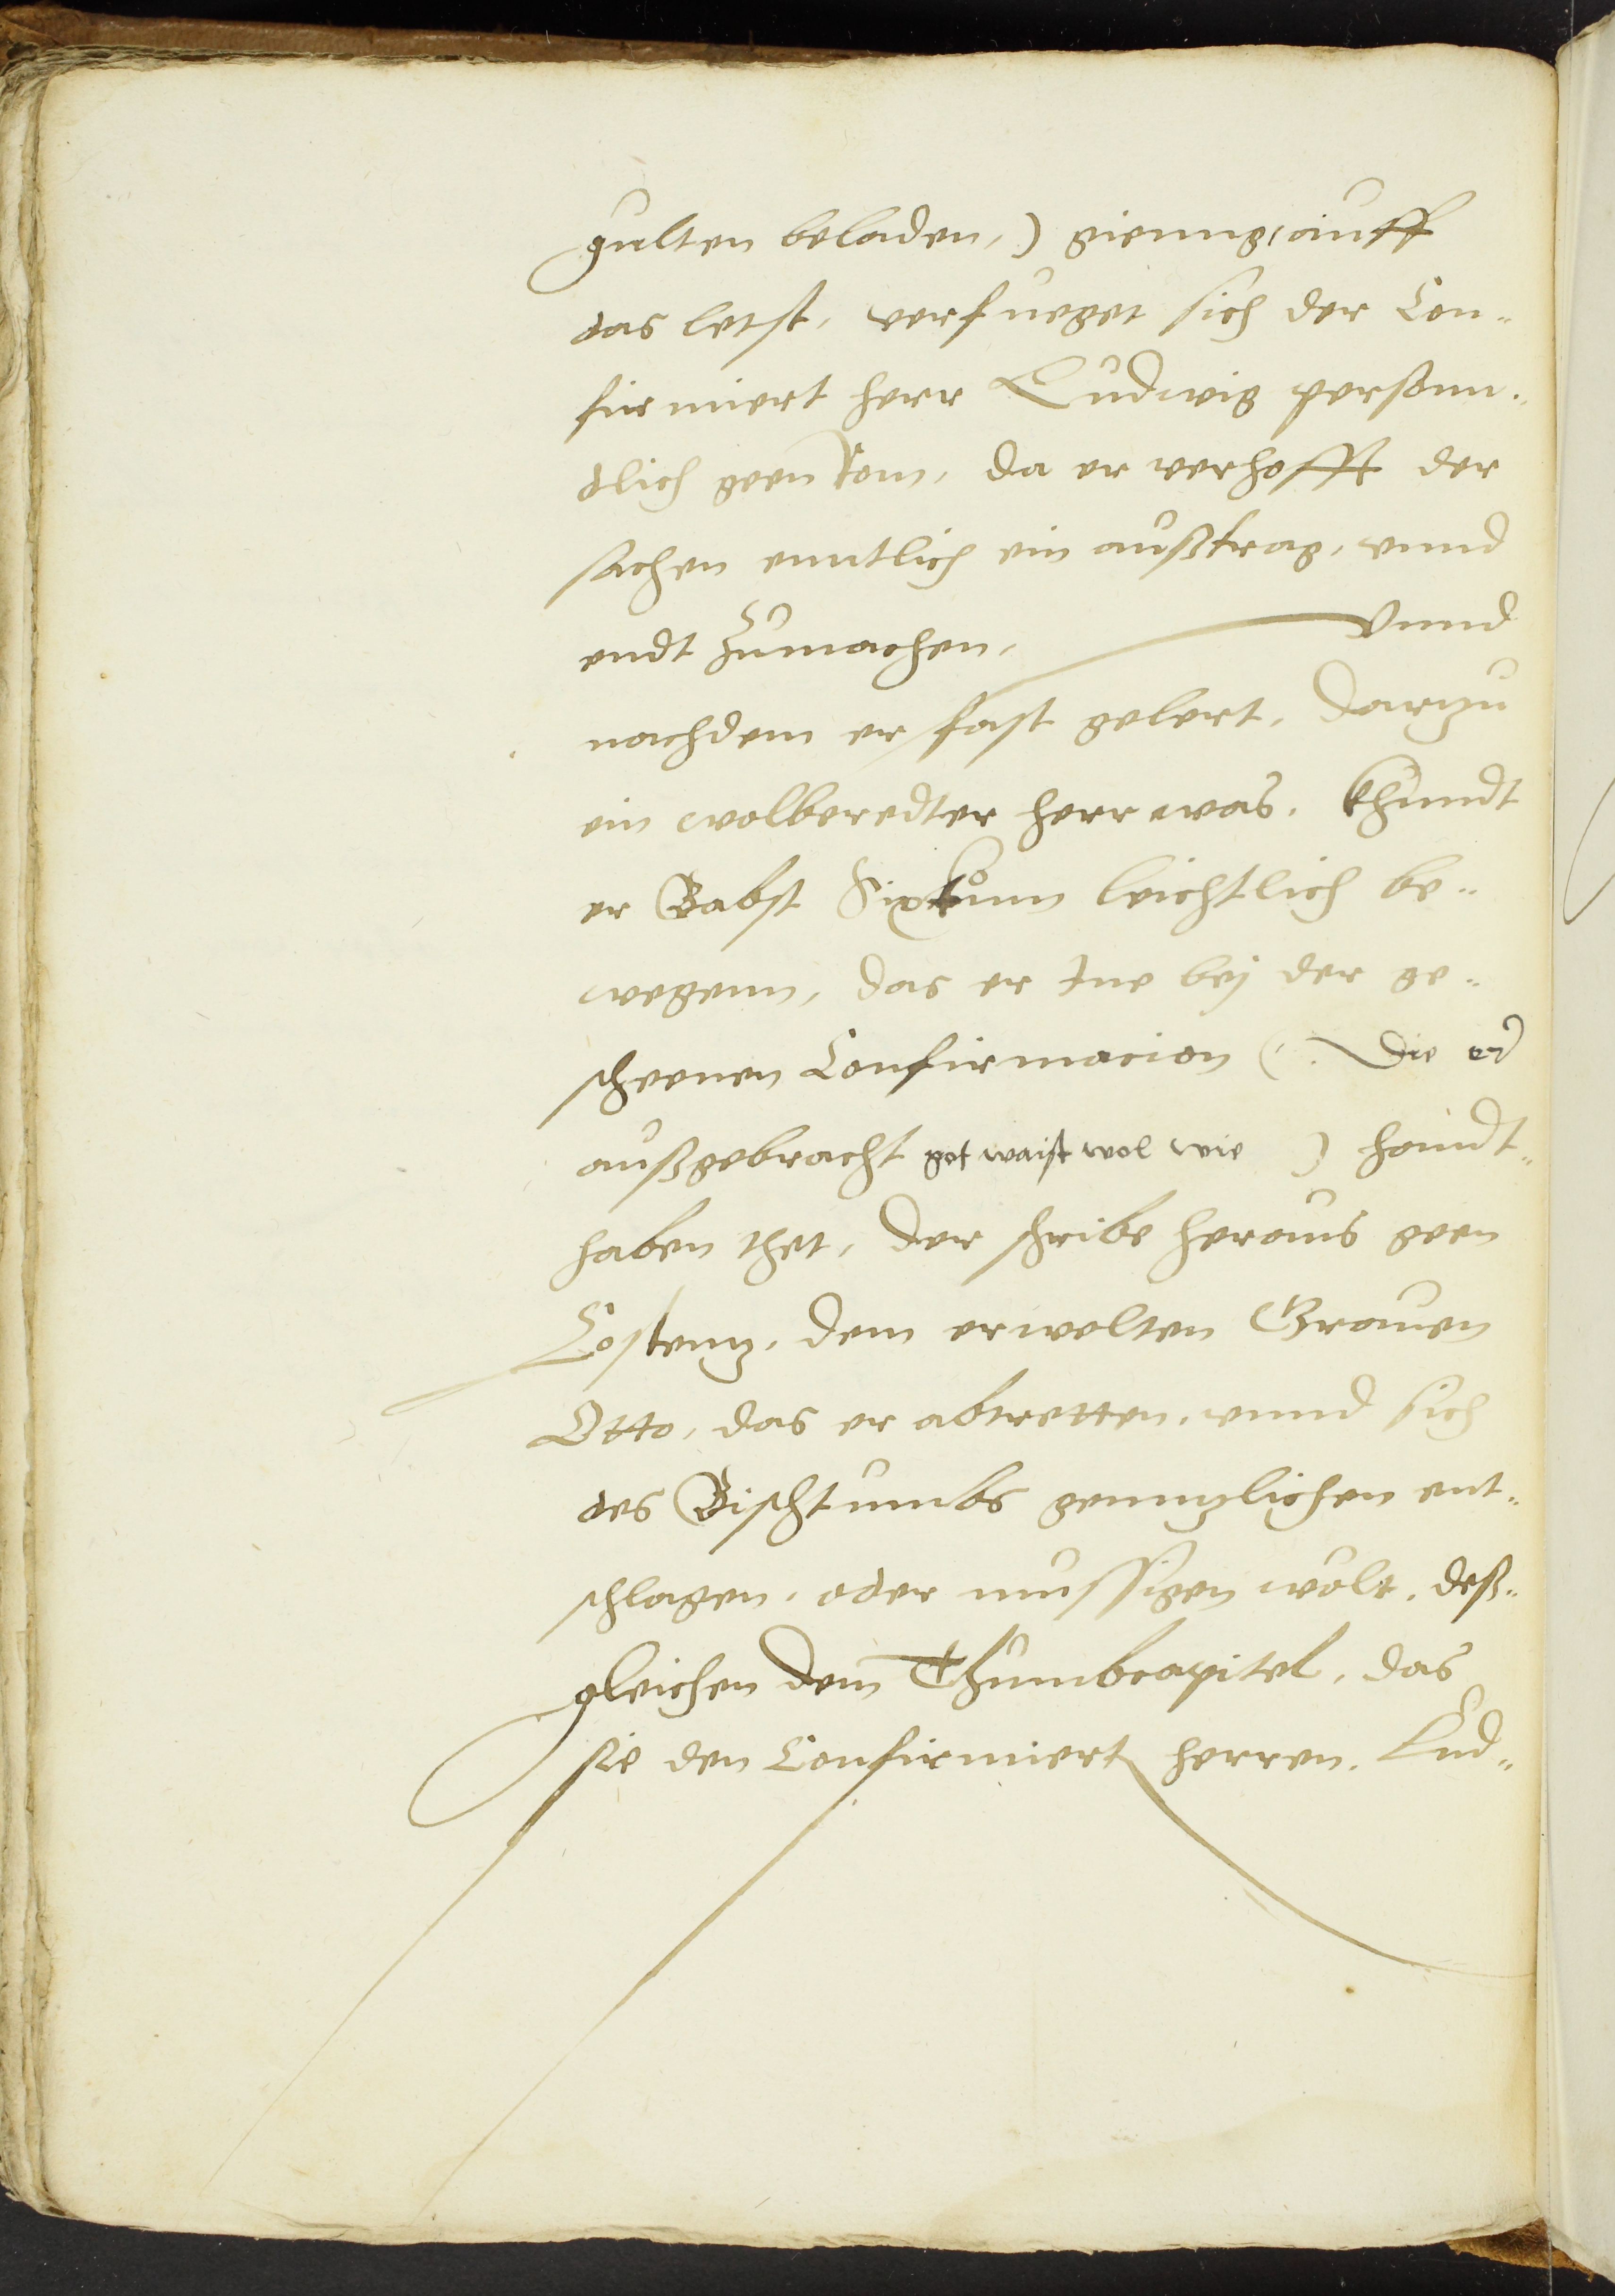 gulten beladen,) gienng, auff
das letst, verfueget sich der Con„
firmiert herr Ludwig personn„
tlich geen Rom, da er verhofft der
sachen enntlich ein außtrag, vnnd
endt zumachen, Vnnd
nachdem er fast gelert, darzu
ein wolberedter herr was, khundt
er Babst Sixtum leichtlich be„
wegenn, das er Ine bey der ge„
scheenen Confirmacion (. die er
außgebracht got waist wol wie ) handt„
haben thet, der schribe heraus geen
Costenz, dem erwelten Grauen
Otto, das er abtretten, vnnd sich
des Bischtumbs gennzlichen ent„
schlagen, oder mussigen wolt, deß„
gleichen dem Thumbcapitel, das
sie den Confirmiert herren, Lud„